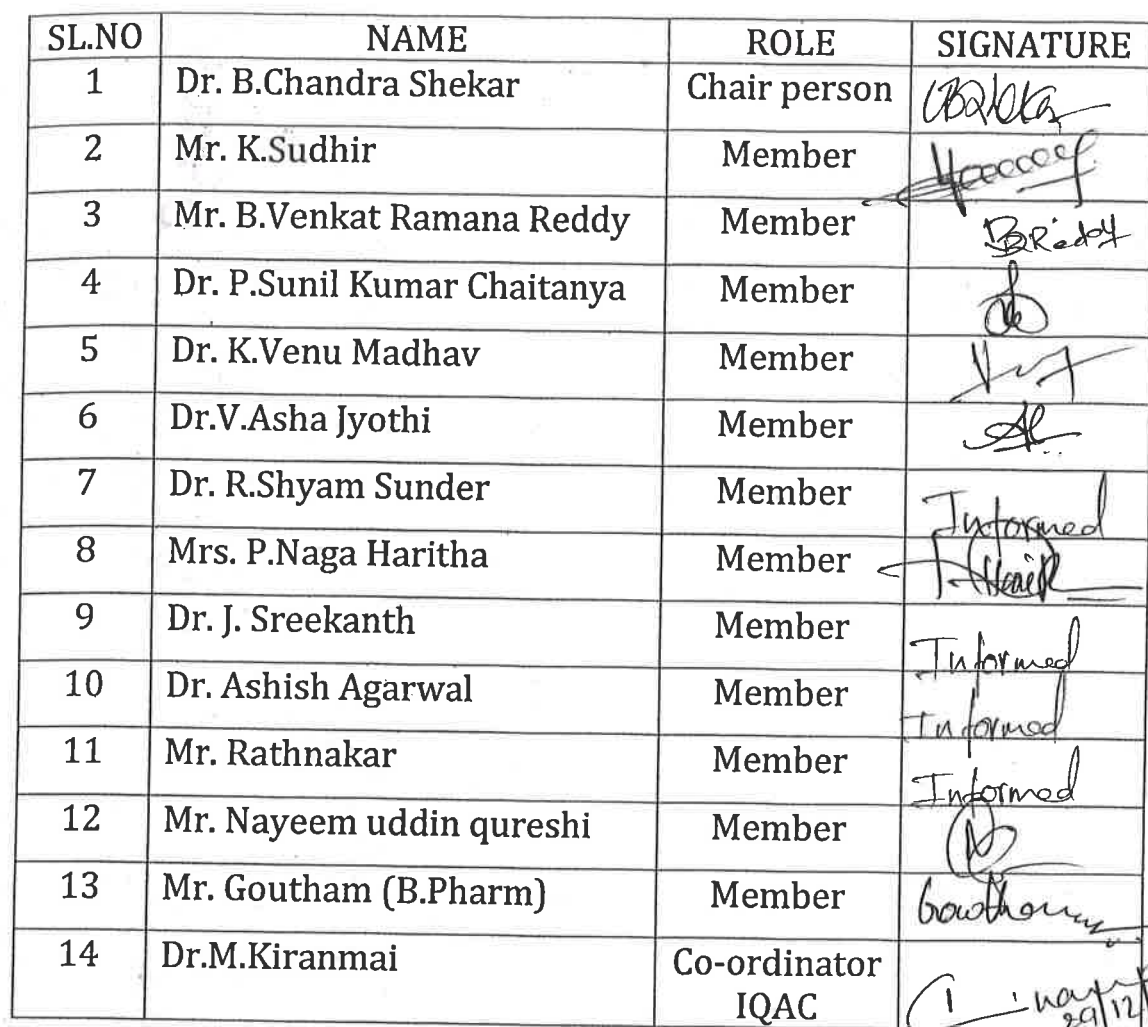 SL.NO NAME ROLE SIGNATURE
1 Dr. B.Chandra Shekar Chair person
2 Mr. K.Sudhir Member
3 Mr. B.Venkat Ramana Reddy Member BReddy
4 Dr. P.Sunil Kumar Chaitanya Member
5 Dr. K.Venu Madhav Member
6 Dr.V.Asha Jyothi Member
7 Dr. R.Shyam Sunder Member Informed
8 Mrs. P.Naga Haritha Member
9 Dr. J. Sreekanth Member Informed
10 Dr. Ashish Agarwal Member Informed
11 Mr. Rathnakar Member Informed
12 Mr. Nayeem uddin qureshi Member
13 Mr. Goutham (B.Pharm) Member
14 Dr.M.Kiranmai Co-ordinator
IQAC
29/12/